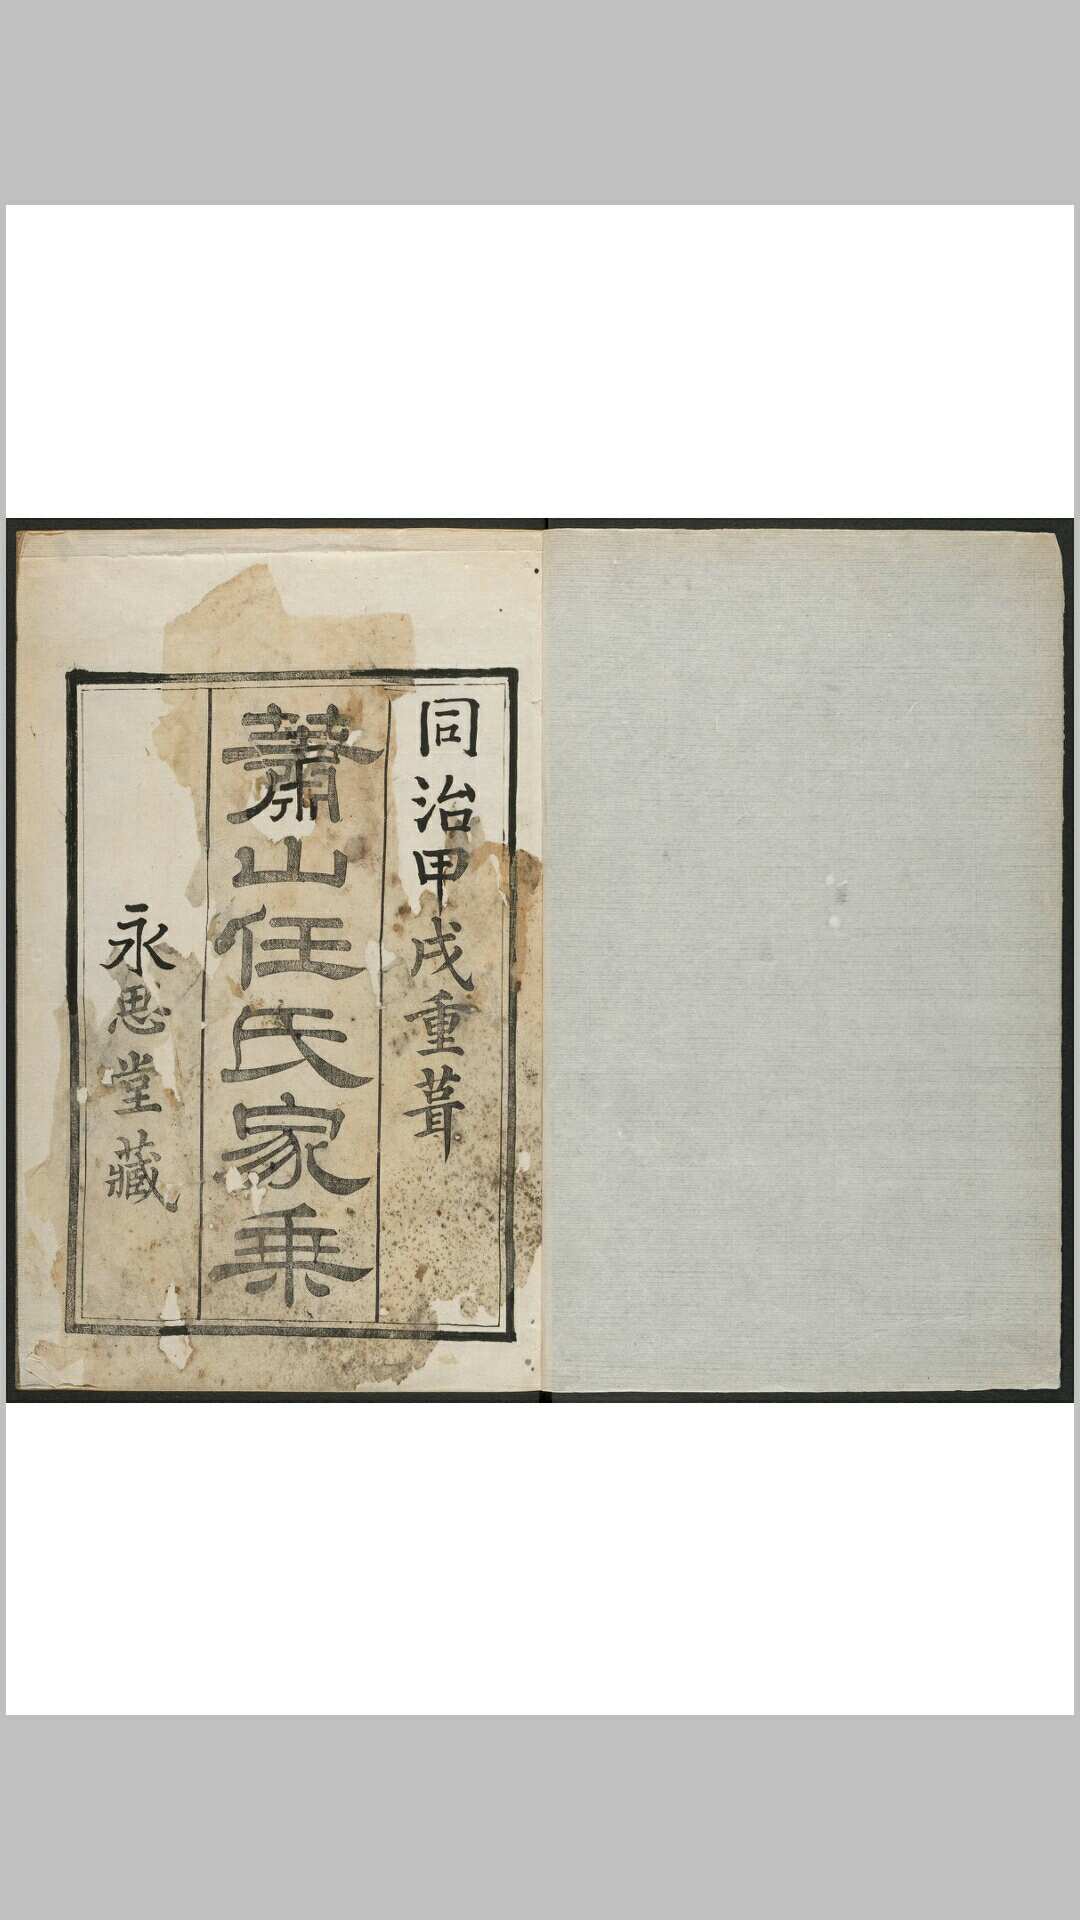 同治甲戌重葺
蕭山任氏家乗
永思堂藏